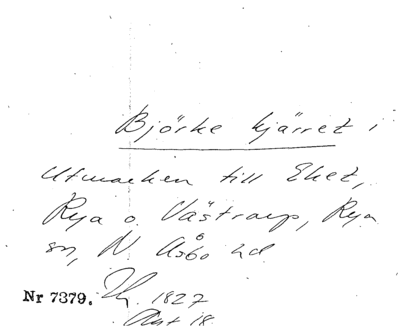 Björke kjärret i
utmarken till Eket,
Rya o. Västrarp, Rya
sn, N Åsbo hd
Nr 7379. 1827
18